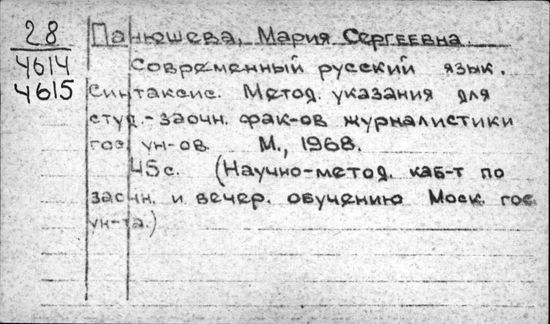 28
4614
4615
Панюшева, Мария Сергеевна
Современный русский язык.
Синтаксис. Метод. указания для
студ.-заочн. фак-ов журналистики
гос. ун-ов. М., 1968.
45с. (Научно-метод. каб-т по
заочн. и вечер. обучению Моск. гос.
ун-та.)